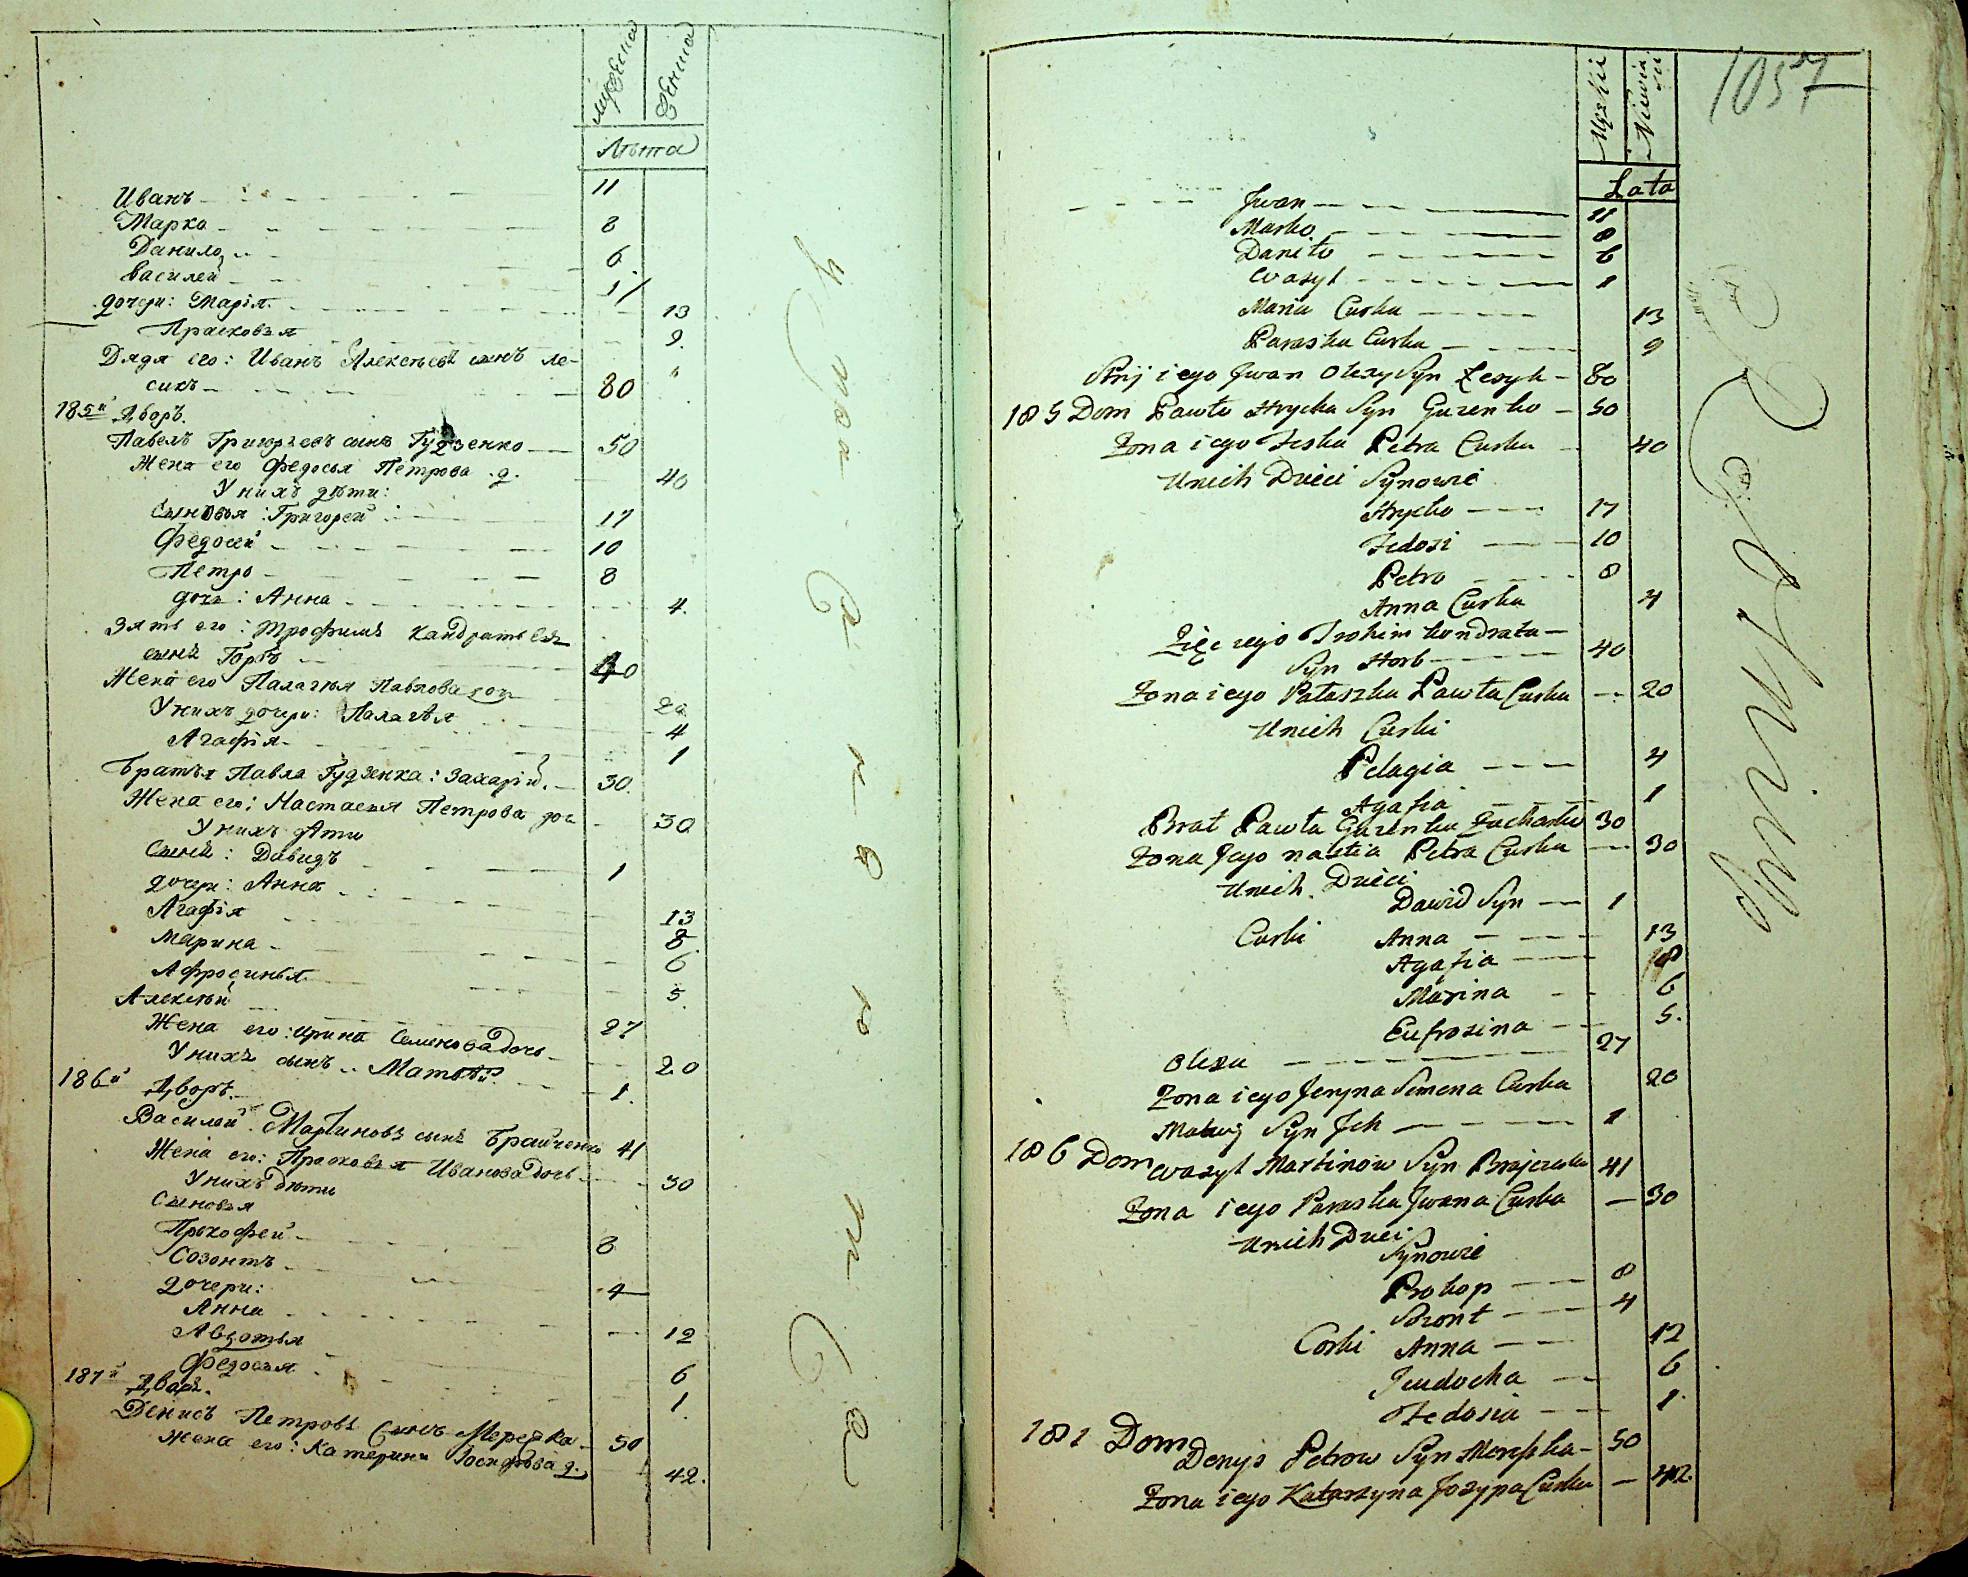 мужеска
Женска
Лѣта
Иванъ 11
Марко 8
Данило 6
Василей 1
дочери: Марія 13
Прасковья 9
Дядя его: Иванъ Алексѣевъ сынъ Ле-
сикъ 80
185й Дворъ.
Павелъ Григорьевъ сынъ Гудзенко 50
Жена его Федосья Петрова д. 40
У нихъ дѣти:
Сыновья: Григорей 17
Федосей 10
Петро 8
дочь: Анна 4
Зять его: Трофимъ Кандратьевъ
сынъ Горбъ 40
Жена его Палагѣя Павлова доч 20
У нихъ дочери: Палагѣя 4
Агафія 1
Братья Павла Гудзенка: Захарій 30
Жена его: Настасья Петрова доч 30
У нихъ дѣти
Сынъ: Давидъ 1
дочери: Анна 13
Агафія 8
Марина 6
Афросинья 5
Алексѣй 27
Жена его: Ирина Семенова дочь 20
У нихъ сынъ Матвѣй 1
186й Дворъ.
Василей Мартиновъ сынъ Брайченко 41
Жена его: Прасковья Иванова дочь 30
У нихъ дѣти
Сыновья
Прокофей 8
Созонтъ 4
дочери:
Анна 12
Авдотья 6
Федосья 1
187й Дворъ.
Денисъ Петровъ сынъ Мережка 50
Жена его: Катерина Іосифова д. 42
1057
Męzkii
Lata
Jwan 11
Marko 8
Daniło 6
Wasyl 1
Maria Curka 13
Paraska Curka 9
Stryj iego Jwan Olexy Syn Łesyk 80
185 Dom Pawło Hrycka Syn Guzenko 50
Żona iego Feska Petra Curka 40
U nich Dzieci Synowie
Hrycko 17
Fedosi 10
Petro 8
Anna Curka 4
Zięc iego Trohim Kondrata
Syn Horb 40
Żona iego Pałaszka Pawła Curka 20
U nich Curki
Pelagia 4
Agafia 1
Brat Pawła Guzenka Zacharko 30
Żona Jego Nastia Petra Curka 30
U nich Dzieci
Dawid Syn 1
Curki Anna 13
Agafia 8
Marina 6
Eufrosina 5.
Olexii 27
Żona iego Jeryna Semena Curka 20
Matwij Syn Jch 1
186 Dom Wasyl Martinow Syn Brajczenko 41
Żona iego Paraska Jwana Curka 30
U nich Dzieci
Synowie
Prokop 8
Sozont 4
Corki Anna 12
Jewdocha 6
Fedosia 1.
187 Dom
Denys Petrow Syn Mereżka 50
Żona iego Katarzyna Jozypa Curka 42